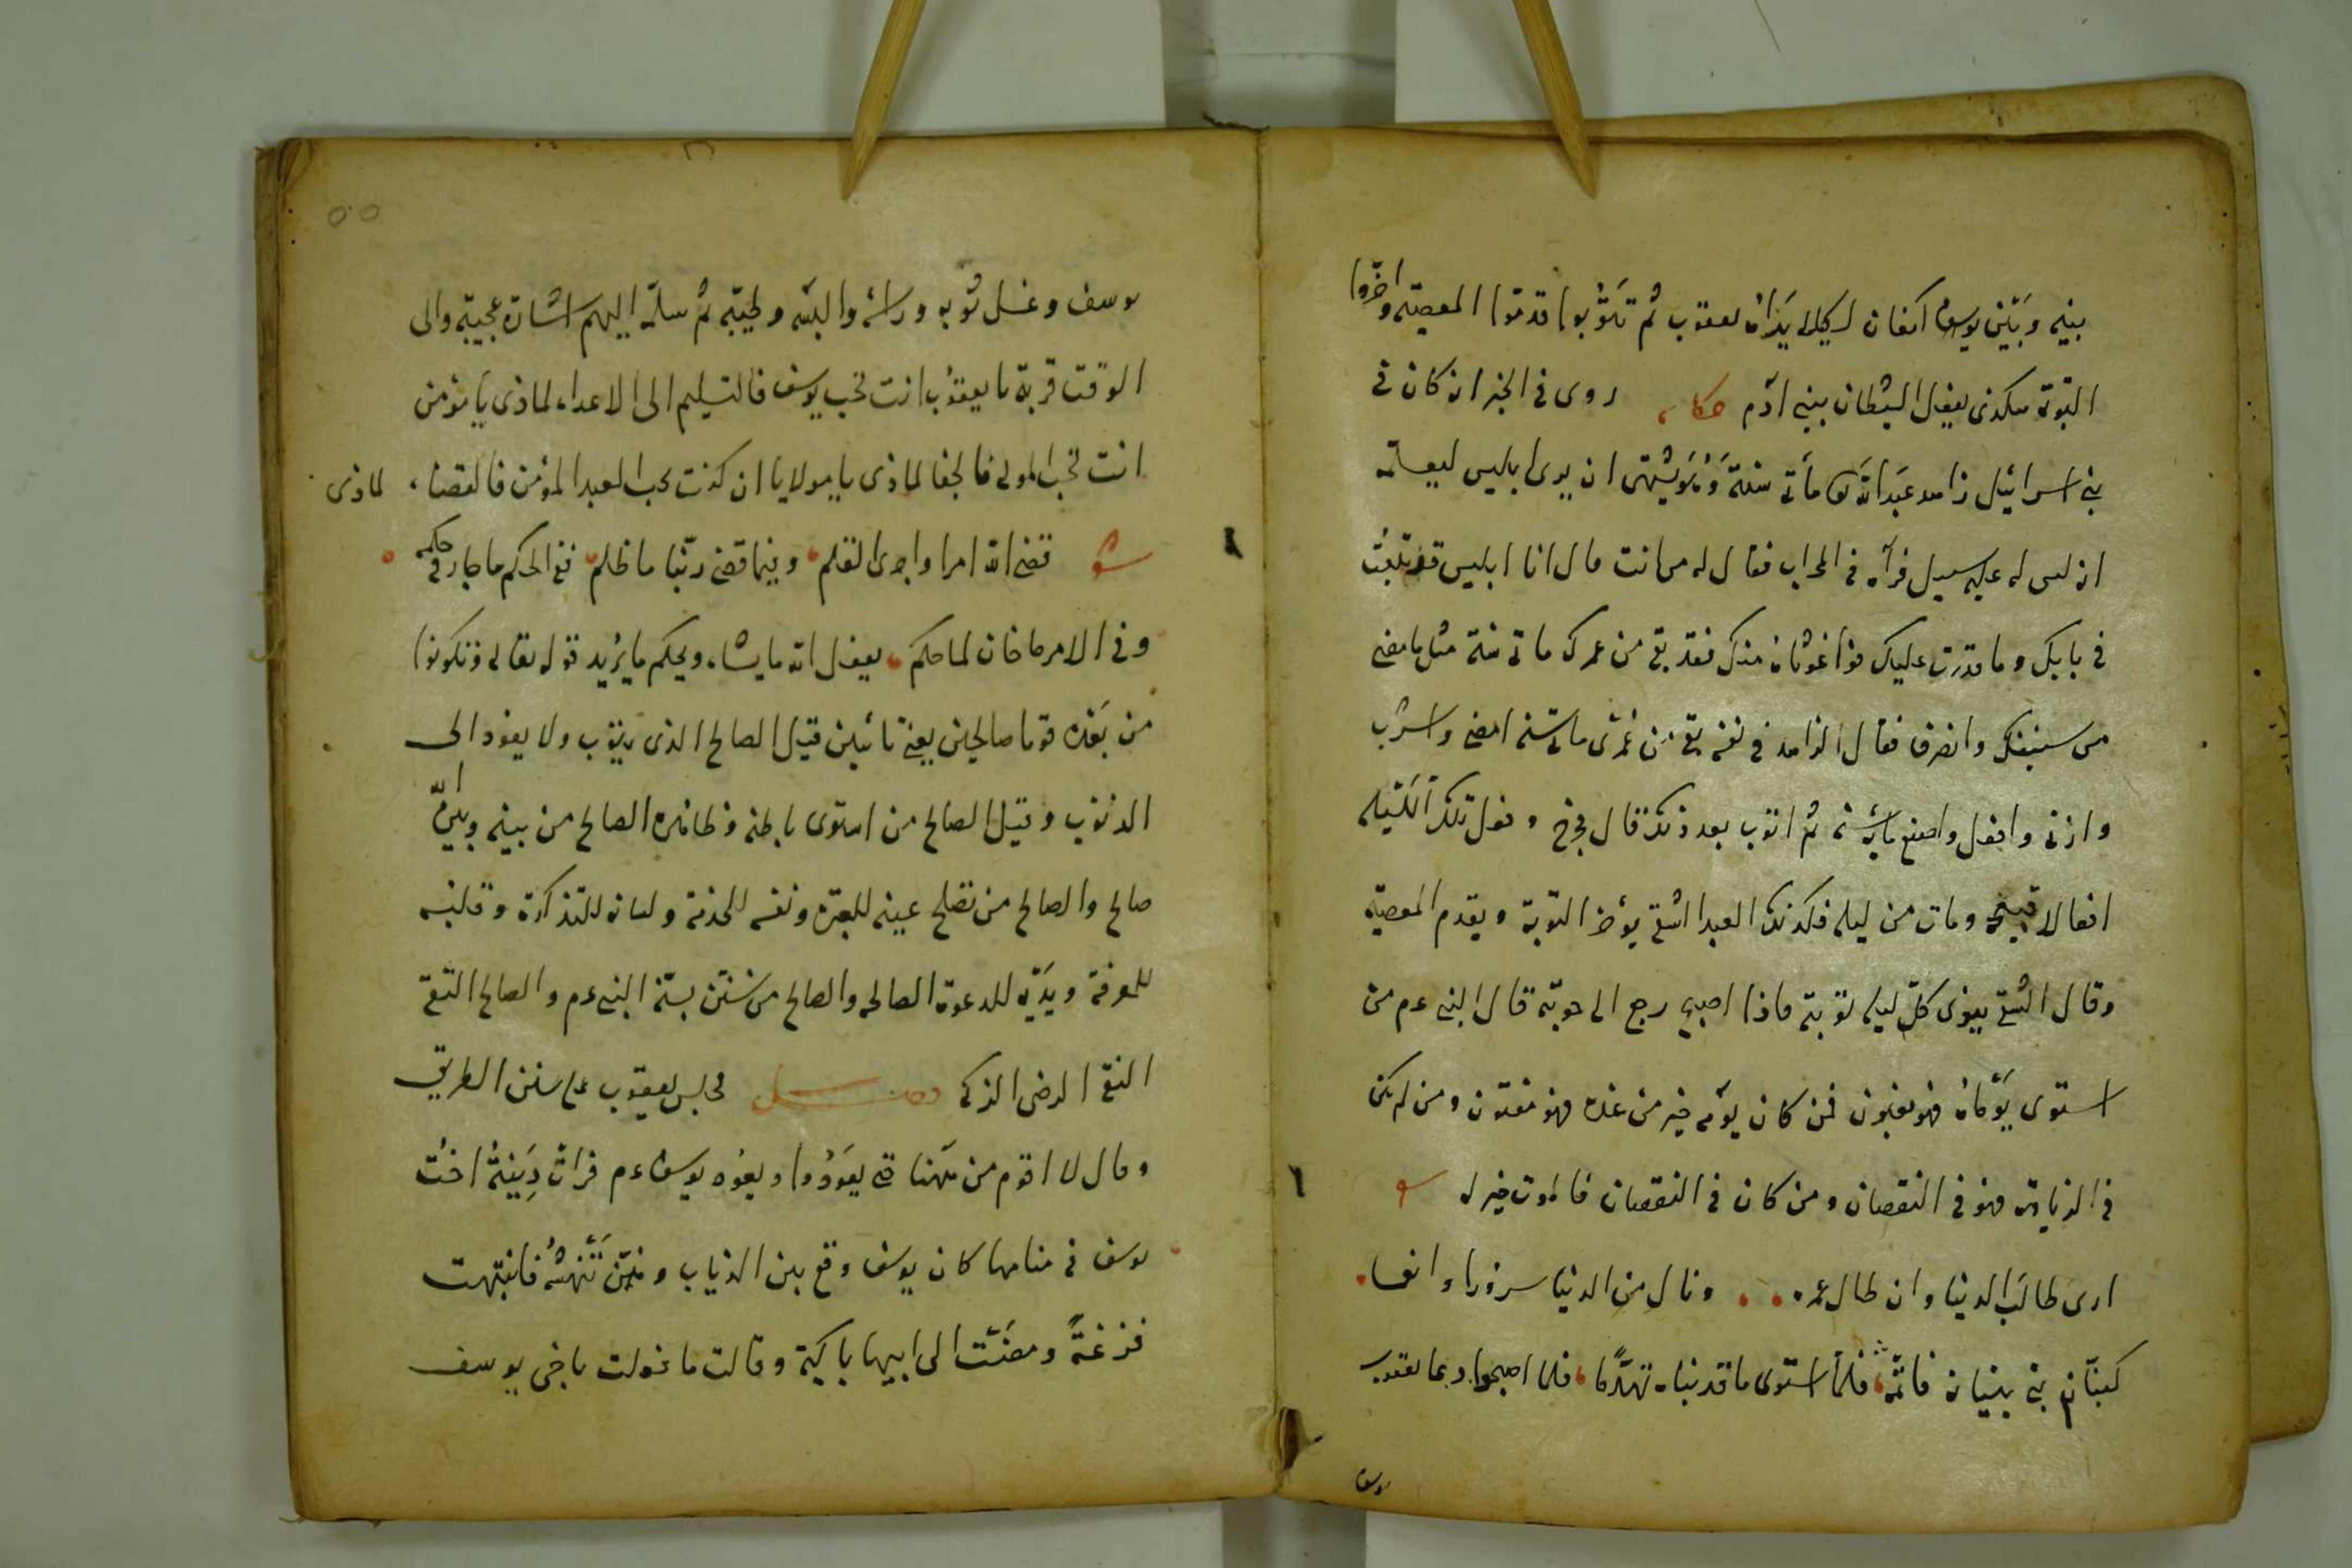 بينه وبين يوسف اكفان لكيلا يراه يعقوب ثم تتوبوا قدموا المعصية واخروا
التوبة هكذى يفعل الشيطان ببنى ادم حكاية روى فى الخبر انه كان فى
بنى اسرائيل زاهد عبد الله تعا مأتى سنة وهو يشتهى ان يرى ابليس ليعلمه
انه ليس له عليه سبيل فرآه فى المحراب فقال له من انت قال انا ابليس قد تلبث
فى بابك وما قدرت عليك منك فقد بقى من عمرك ماتى سنة مثل ما مضى
من سنينك وانصرف فقال الزاهد فى نفسه بقى من عمرى ماتى سنة امضى واشرب
وازنى وافعل واصنع ماية سنة ثم اتوب بعد ذلك قال فخرج وفعل تلك الليلة
افعالا قبيحة ومات من ليله فكذلك العبد الشقى يؤخر التوبة ويقدم المعصية
وقال الشقى ينوى كل ليلة توبة فاذا اصبح رجع الى حوبته قال النبى عم من
استوى يوماه فهو مغبون فمن كان يومه خير من غده فهو مفتون ومن لم يكن
فى الزيادة فهو فى النقصان ومن كان فى النقصان فالموت خير له
ارى طالب الدنيا وان طال عمره ونال من الدنيا سرورا وانعما
كبنان بنى بنيانه فاتمه فلما استوى ما قد بناه تهدما فلما اصبحوا دعا يعقوب
يوسف
يوسف وغسل ثوبه وراسه والبسه وطيبه ثم سلمه اليهم اشارة عجيبة والى
الوقت قربة يا يعقوب انت تحب يوسف فالتسليم الى الاعداء لماذى يا مؤمن
انت تحب المولى فالجفا لماذى يا مولايا ان كنت تحب العبد المؤمن فالقضاء لماذى
شعر قضى الله امرا واجرى القلم وفيما قضى ربنا ما ظلم ففى الحكم ما جار فى حكمه
وفى الامر ما خان لما حكم يفعل الله ما يشاء ويحكم ما يريد قوله تعالى وتكونوا
من بعده قوما صالحين يعنى تائبين قيل الصالح الذى يتوب ولا يعود الى
الذنوب وقيل الصالح من استوى باطنه وظاهره الصالح من بينه وبين الله
صالح والصالح من تصلح عينه للعبرة ونفسه للخدمة ولسانه للتذكرة وقلبه
للمعرفة ويديه للدعوة الصالحه والصالح من سنن بسنة النبى عم والصالح التقى
النقى الرضى الزكى فصل فجلس يعقوب على سنن الطريق
وقال لا اقوم من ههنا حتى يعودوا ويعود يوسف عم فرات دينة اخت
يوسف فى منامها كان يوسف وقع بين الذياب وهن تنهشه فانتبهت
فزعة ومضت الى ابيها باكية وقالت ما فعلت باخى يوسف